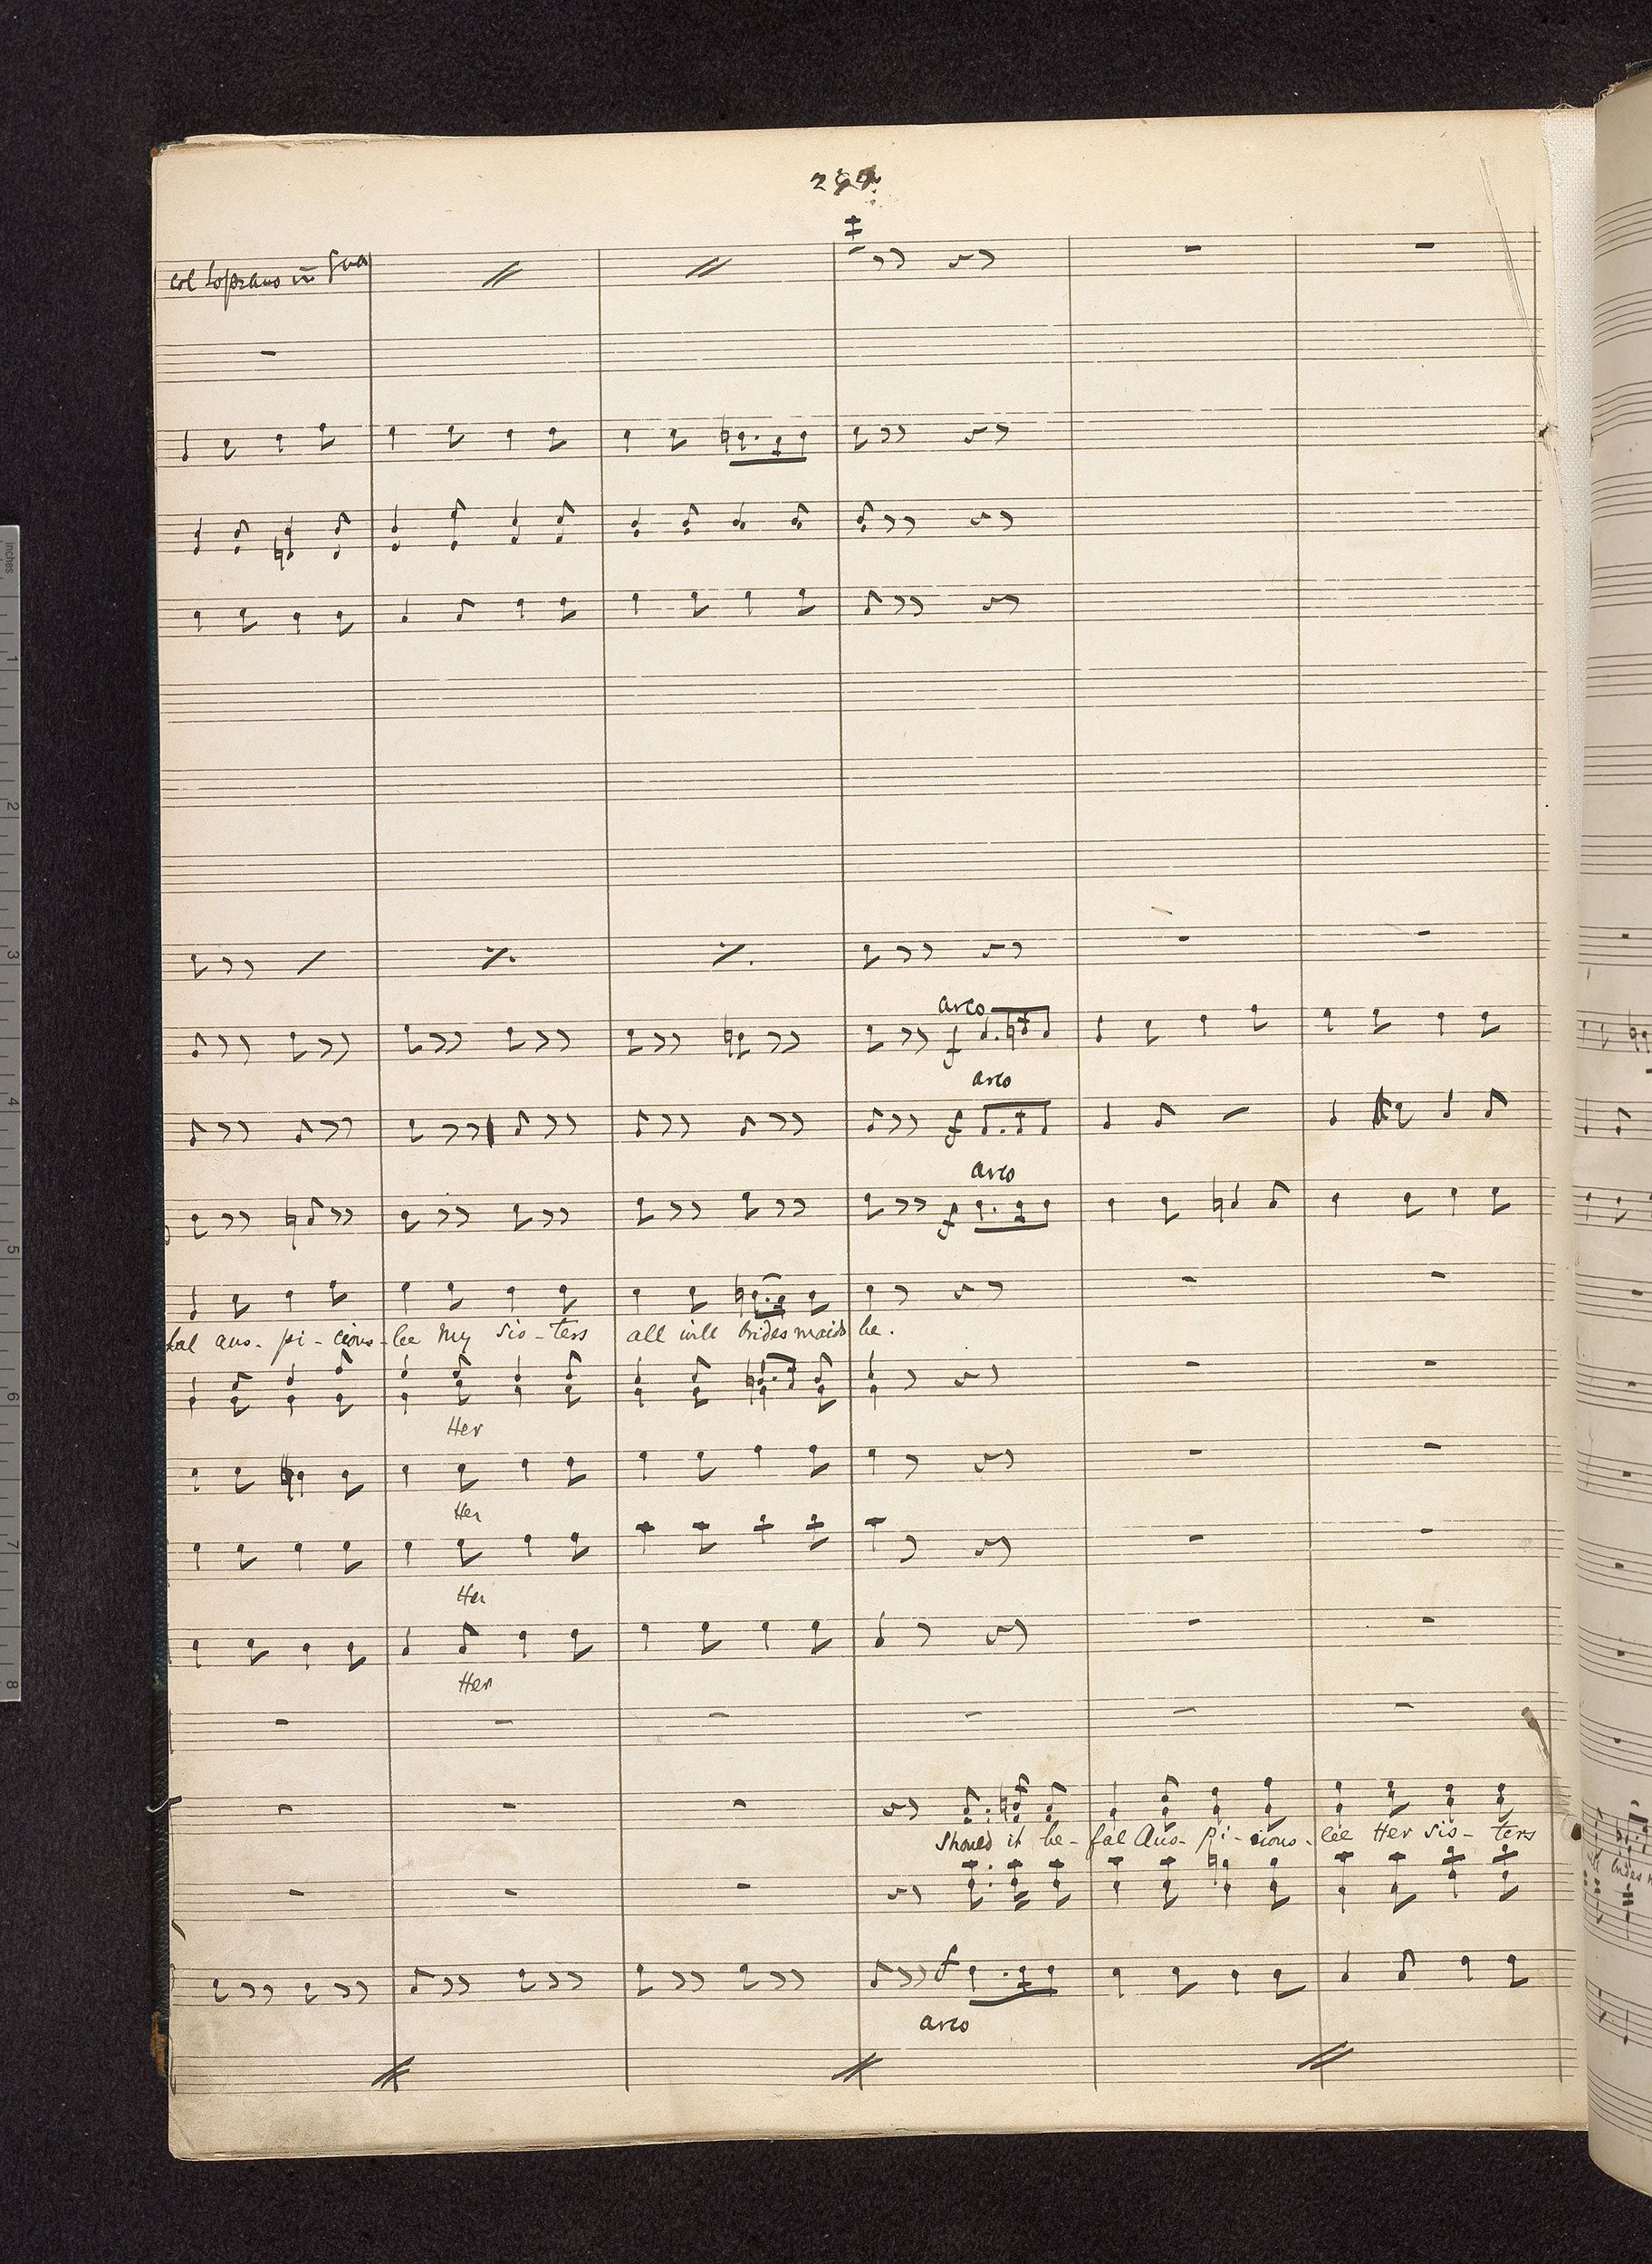 col Soprano in 8va
arco
f
arco
f
arco
f
fal aus- pi- cious- lee My sis- ters all will bridesmaids be.
Her
Her
Her
Her
should it be- fal Aus- pi- cious- lee Her sis- ters
f
arco
inches
1
2
3
4
5
6
7
8